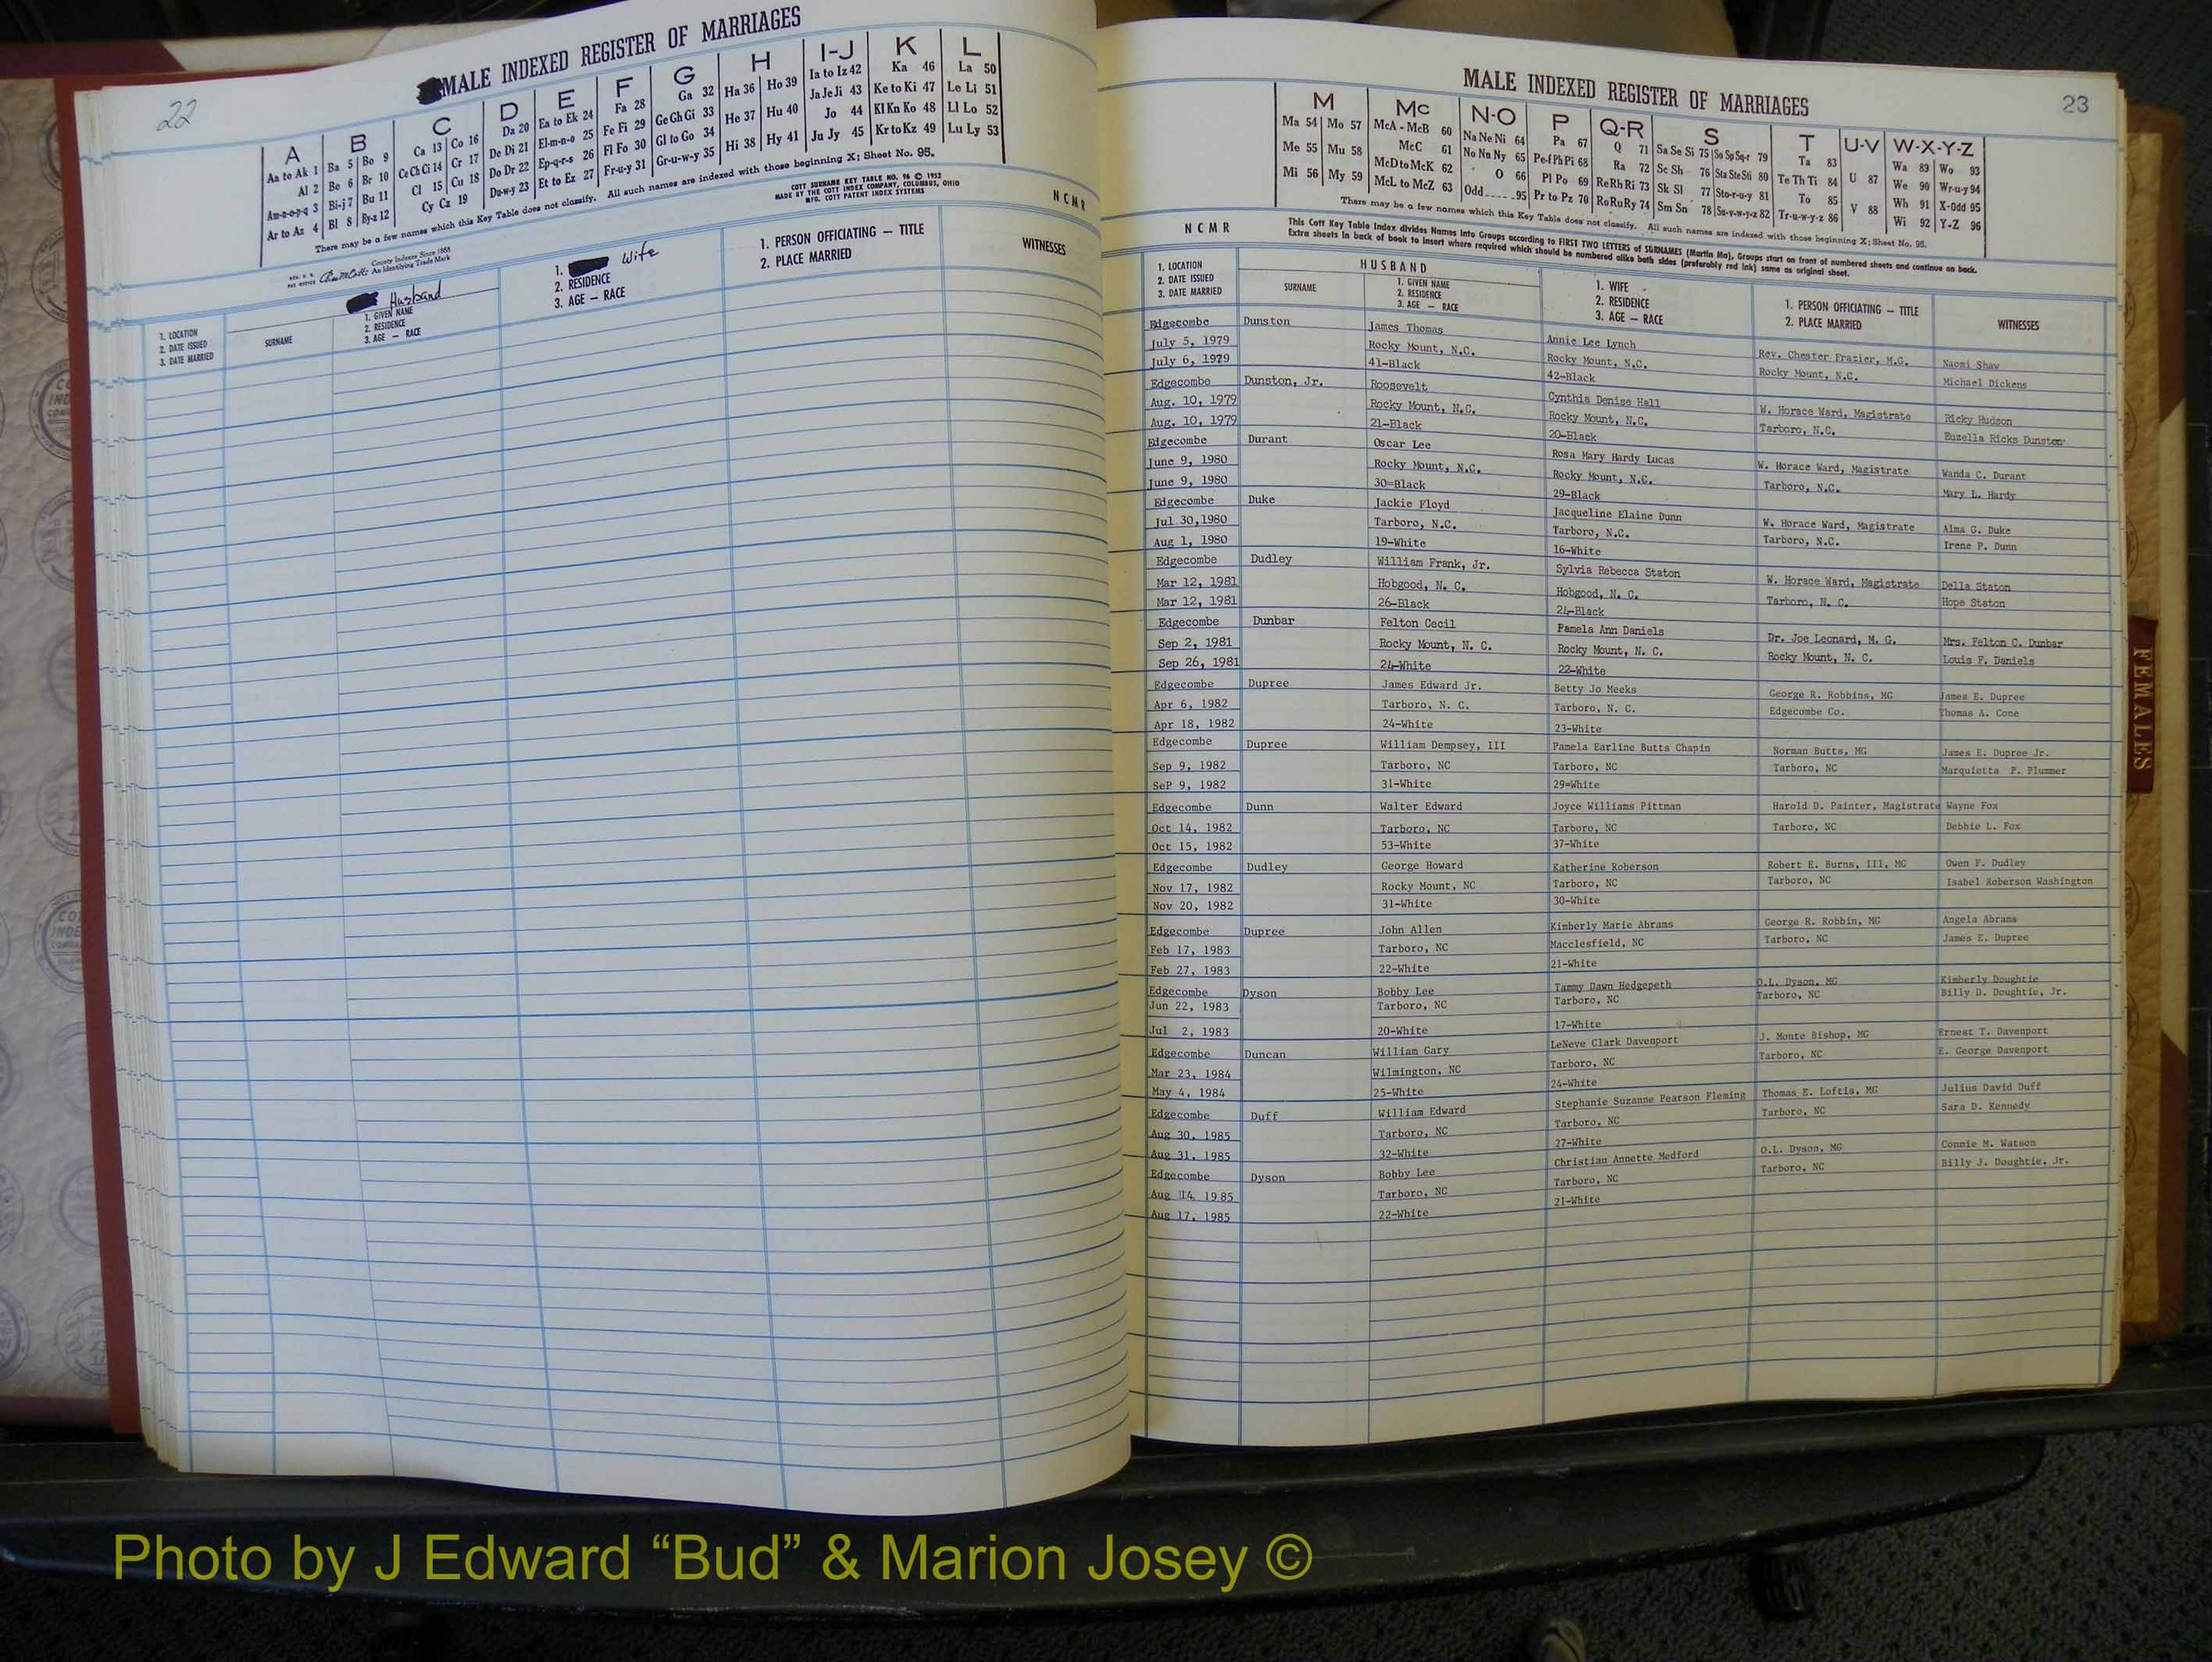 22
MALE INDEXED REGISTER OF MARRIAGES
A B C D E F G H I-J K L
Aa to Ak 1
Al 2
Am-n-o-p-q 3
Ar to Az 4
Ba 5
Be 6
Bi-j 7
Bl 8
Bo 9
Br 10
Bu 11
By-z 12
Ca 13
Ce Ch Ci 14
Cl 15
Cy Cz 19
Co 16
Cr 17
Cu 18
Da 20
De Di 21
Do Dr 22
Du-w-y 23
Ea to Ek 24
El-m-n-o 25
Ep-q-r-s 26
Et to Ez 27
Fa 28
Fe Fi 29
Fl Fo 30
Fr-u-y 31
Ga 32
Ge Gh Gi 33
Gl to Go 34
Gr-u-w-y 35
Ha 36
He 37
Hi 38
Ho 39
Hu 40
Hy 41
Ia to Iz 42
Ja Je Ji 43
Jo 44
Ju Jy 45
Ka 46
Ke to Ki 47
Kl Kn Ko 48
Kr to Kz 49
La 50
Le Li 51
Ll Lo 52
Lu Ly 53
There may be a few names which this Key Table does not classify. All such names are indexed with those beginning X; Sheet No. 95.
County Indexes Since 1888
An Identifying Trade Mark
COTT SURNAME KEY TABLE NO. 96 © 1952
MADE BY THE COTT INDEX COMPANY, COLUMBUS, OHIO
MFG. COTT PATENT INDEX SYSTEMS
N C M R
1. LOCATION
2. DATE ISSUED
3. DATE MARRIED
SURNAME
Husband
1. GIVEN NAME
2. RESIDENCE
3. AGE — RACE
1. Wife
2. RESIDENCE
3. AGE — RACE
1. PERSON OFFICIATING — TITLE
2. PLACE MARRIED
WITNESSES
MALE INDEXED REGISTER OF MARRIAGES
23
M Mc N-O P Q-R S T U-V W-X-Y-Z
Ma 54
Me 55
Mi 56
Mo 57
Mu 58
My 59
McA - McB 60
McC 61
McD to McK 62
McL to McZ 63
Na Ne Ni 64
No Nu Ny 65
O 66
Odd 95
Pa 67
Pe-f Ph Pi 68
Pl Po 69
Pr to Pz 70
Q 71
Ra 72
Re Rh Ri 73
Ro Ru Ry 74
Sa Se Si 75
Sc Sh 76
Sk Sl 77
Sm Sn 78
So Sp Sq-r 79
Sta Ste Sti 80
Sto-r-u-y 81
Su-v-w-y-z 82
Ta 83
Te Th Ti 84
To 85
Tr-u-w-y-z 86
U 87
V 88
Wa 89
We 90
Wh 91
Wi 92
Wo 93
Wr-u-y 94
X-Odd 95
Y-Z 96
There may be a few names which this Key Table does not classify. All such names are indexed with those beginning X; Sheet No. 95.
N C M R
This Cott Key Table Index divides Names into Groups according to FIRST TWO LETTERS of SURNAMES (Martin Ma), Groups start on front of numbered sheets and continue on back.
Extra sheets in back of book to insert where required which should be numbered alike both sides (preferably red ink) same as original sheet.
1. LOCATION
2. DATE ISSUED
3. DATE MARRIED
HUSBAND
SURNAME
1. GIVEN NAME
2. RESIDENCE
3. AGE — RACE
1. WIFE
2. RESIDENCE
3. AGE — RACE
1. PERSON OFFICIATING — TITLE
2. PLACE MARRIED
WITNESSES
Edgecombe Dunston James Thomas Annie Lee Lynch Rev. Chester Frazier, M.G. Naomi Shaw
July 5, 1979 Rocky Mount, N.C. Rocky Mount, N.C. Rocky Mount, N.C. Michael Dickens
July 6, 1979 41-Black 42-Black
Edgecombe Dunston, Jr. Roosevelt Cynthia Denise Hall W. Horace Ward, Magistrate Ricky Hudson
Aug. 10, 1979 Rocky Mount, N.C. Rocky Mount, N.C. Tarboro, N.C. Euzella Ricks Dunston
Aug. 10, 1979 21-Black 20-Black
Edgecombe Durant Oscar Lee Rosa Mary Hardy Lucas W. Horace Ward, Magistrate Wanda C. Durant
June 9, 1980 Rocky Mount, N.C. Rocky Mount, N.C. Tarboro, N.C. Mary L. Hardy
June 9, 1980 30=Black 29-Black
Edgecombe Duke Jackie Floyd Jacqueline Elaine Dunn W. Horace Ward, Magistrate Alma G. Duke
Jul 30,1980 Tarboro, N.C. Tarboro, N.C. Tarboro, N.C. Irene P. Dunn
Aug 1, 1980 19-White 16-White
Edgecombe Dudley William Frank, Jr. Sylvia Rebecca Staton W. Horace Ward, Magistrate Della Staton
Mar 12, 1981 Hobgood, N. C. Hobgood, N. C. Tarboro, N. C. Hope Staton
Mar 12, 1981 26-Black 24-Black
Edgecombe Dunbar Felton Cecil Pamela Ann Daniels Dr. Joe Leonard, M. G. Mrs. Felton C. Dunbar
Sep 2, 1981 Rocky Mount, N. C. Rocky Mount, N. C. Rocky Mount, N. C. Louis F. Daniels
Sep 26, 1981 24-White 22-White
Edgecombe Dupree James Edward Jr. Betty Jo Meeks George R. Robbins, MG James E. Dupree
Apr 6, 1982 Tarboro, N. C. Tarboro, N. C. Edgecombe Co. Thomas A. Cone
Apr 18, 1982 24-White 23-White
Edgecombe Dupree William Dempsey, III Pamela Earline Butts Chapin Norman Butts, MG James E. Dupree Jr.
Sep 9, 1982 Tarboro, NC Tarboro, NC Tarboro, NC Marquietta P. Plummer
SeP 9, 1982 31-White 29=White
Edgecombe Dunn Walter Edward Joyce Williams Pittman Harold D. Painter, Magistrate Wayne Fox
Oct 14, 1982 Tarboro, NC Tarboro, NC Tarboro, NC Debbie L. Fox
Oct 15, 1982 53-White 37-White
Edgecombe Dudley George Howard Katherine Roberson Robert E. Burns, III, MG Owen F. Dudley
Nov 17, 1982 Rocky Mount, NC Tarboro, NC Tarboro, NC Isabel Roberson Washington
Nov 20, 1982 31-White 30-White
Edgecombe Dupree John Allen Kimberly Marie Abrams George R. Robbin, MG Angela Abrams
Feb 17, 1983 Tarboro, NC Macclesfield, NC Tarboro, NC James E. Dupree
Feb 27, 1983 22-White 21-White
Edgecombe Dyson Bobby Lee Tammy Dawn Hedgepeth O.L. Dyson, MG Kimberly Doughtie
Jun 22, 1983 Tarboro, NC Tarboro, NC Tarboro, NC Billy D. Doughtie, Jr.
Jul 2, 1983 20-White 17-White
Edgecombe Duncan William Gary LeNeve Clark Davenport J. Monte Bishop, MG Ernest T. Davenport
Mar 23, 1984 Wilmington, NC Tarboro, NC Tarboro, NC E. George Davenport
May 4, 1984 25-White 24-White
Edgecombe Duff William Edward Stephanie Suzanne Pearson Fleming Thomas E. Loftis, MG Julius David Duff
Aug 30, 1985 Tarboro, NC Tarboro, NC Tarboro, NC Sara D. Kennedy
Aug 31, 1985 32-White 27-White
Edgecombe Dyson Bobby Lee Christian Annette Medford O.L. Dyson, MG Connie M. Watson
Aug 14, 1985 Tarboro, NC Tarboro, NC Tarboro, NC Billy J. Doughtie, Jr.
Aug 17, 1985 22-White 21-White
FEMALES
Photo by J Edward “Bud” & Marion Josey ©